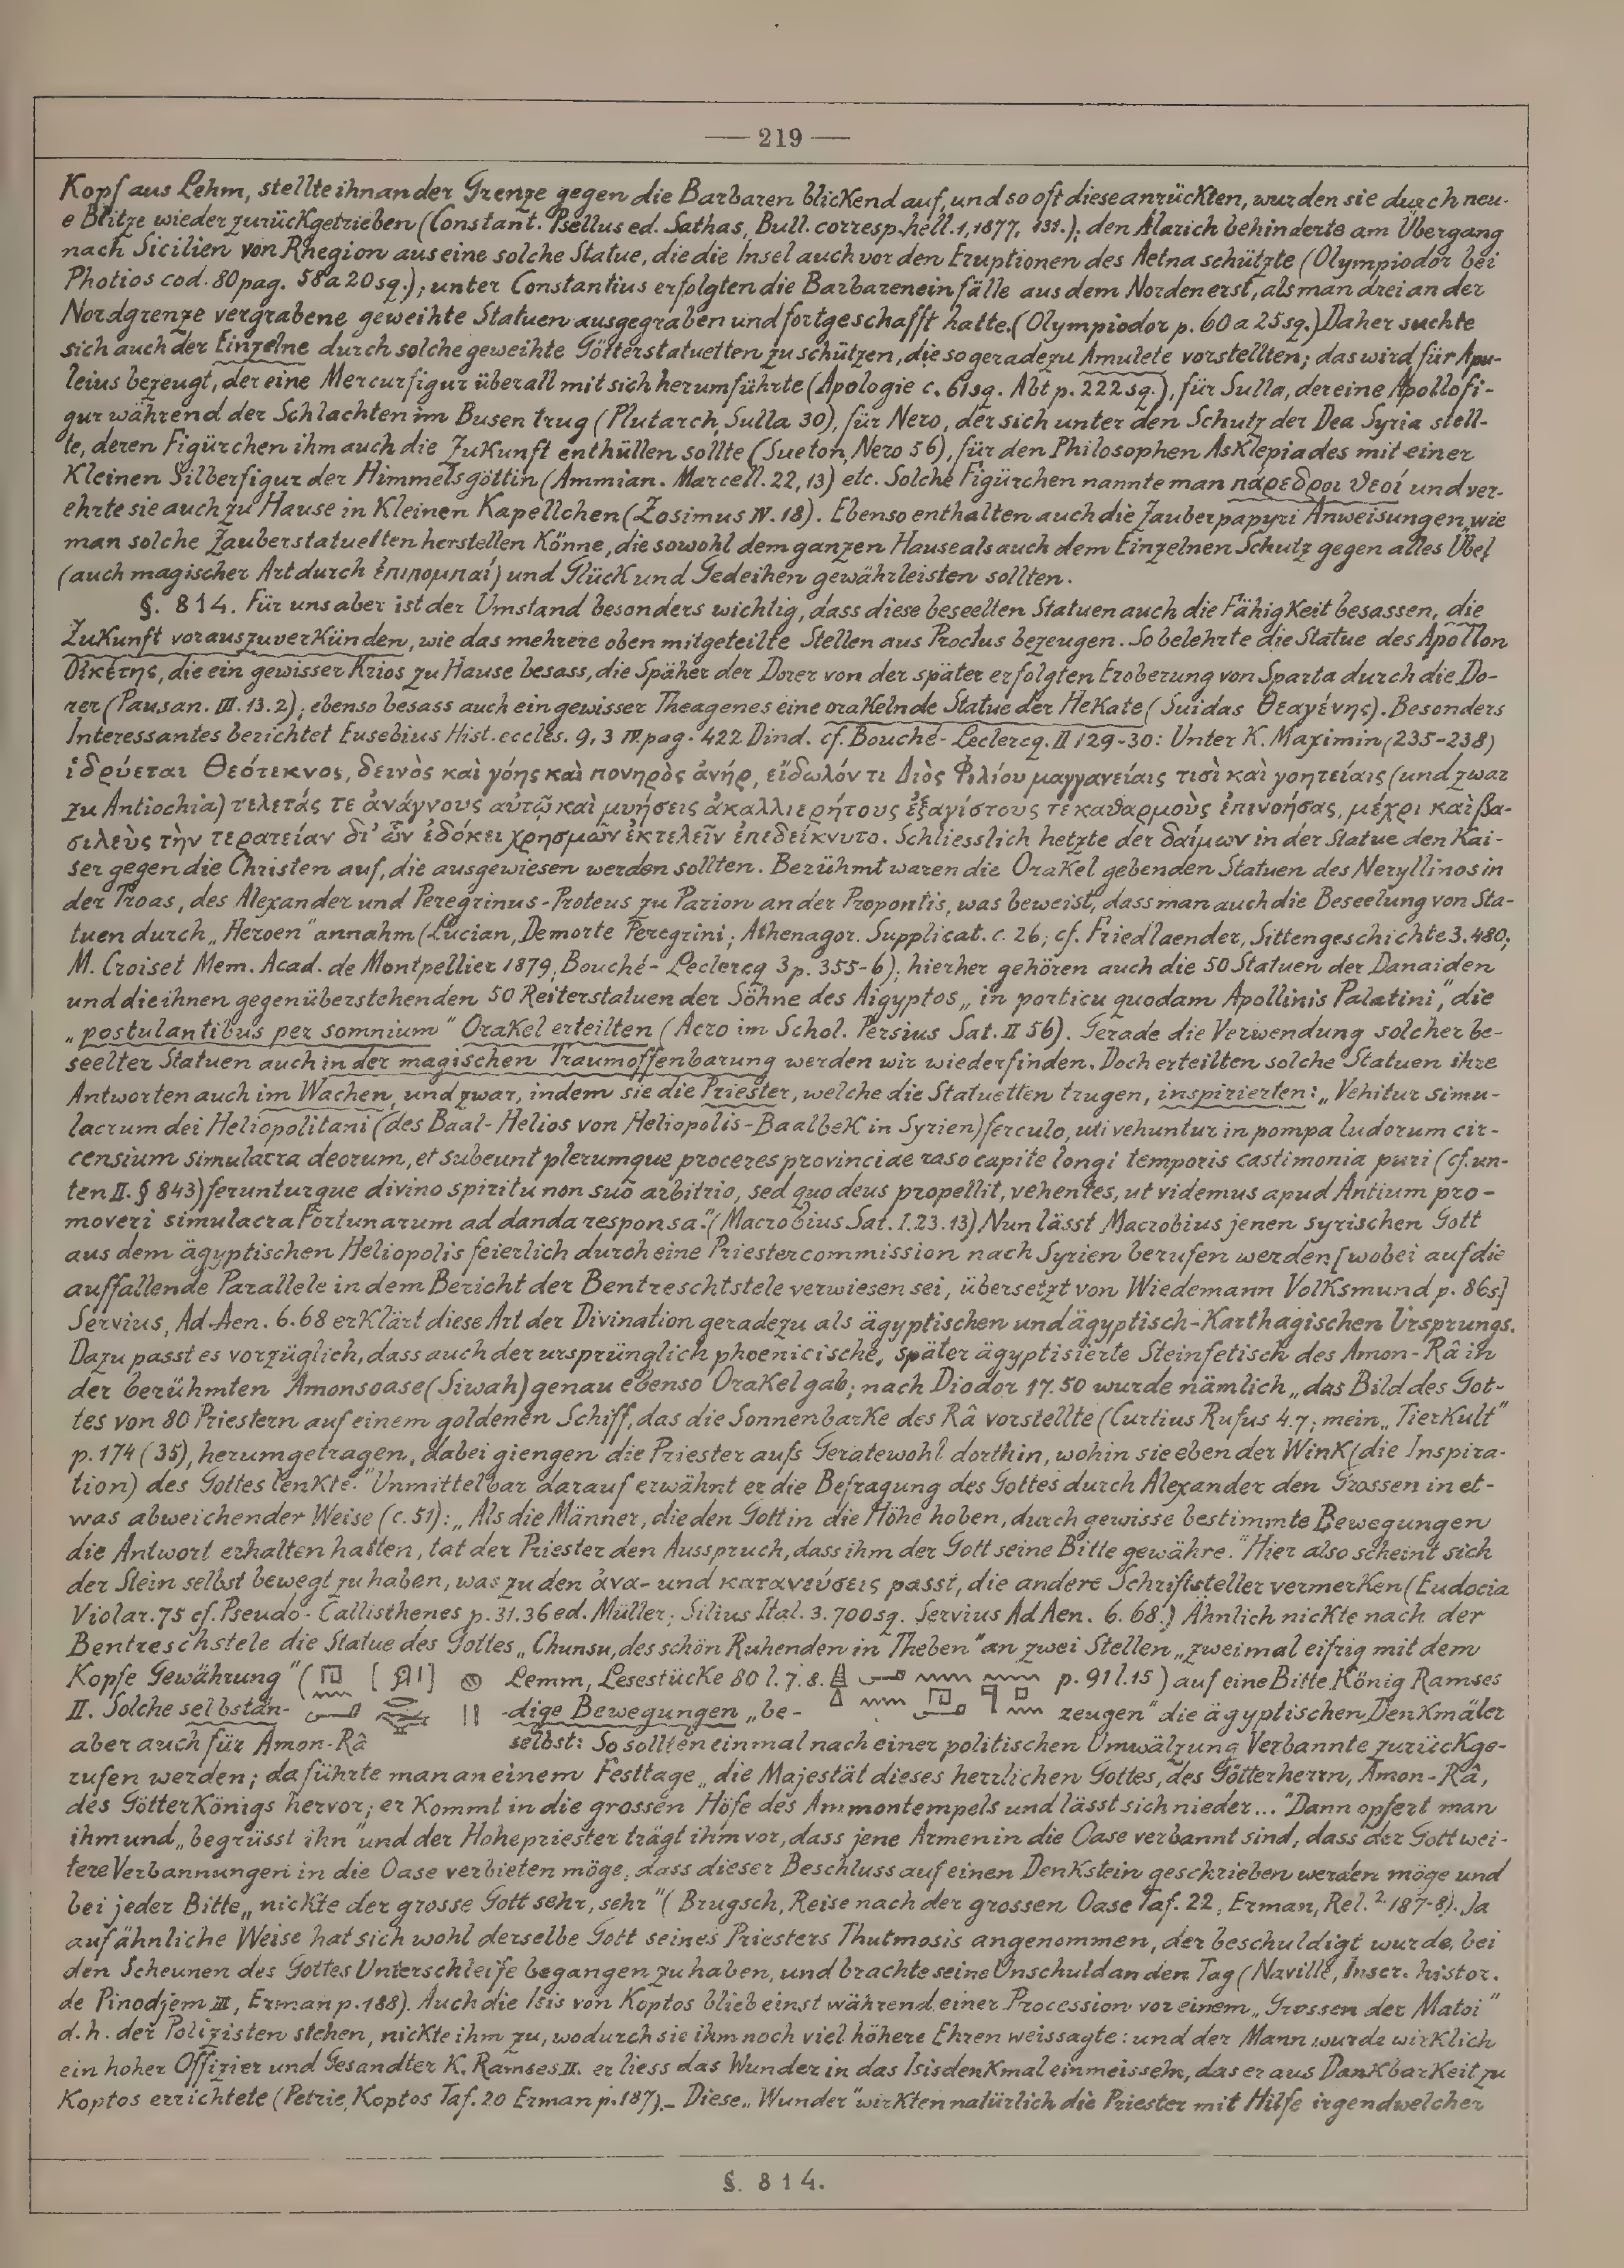 — 219 —
Kopf aus Lehm, stellte ihn an der Grenze gegen die Barbaren blickend auf, und so oft diese anrückten, wurden sie durch neu-
e Blitze wieder zurückgetrieben (Constant. Psellus ed. Sathas, Bull. corresp. hell. 1, 1877, 131.); den Alarich behinderte am Übergang
nach Sicilien von Rhegion aus eine solche Statue, die die Insel auch vor den Eruptionen des Aetna schützte (Olympiodor bei
Photios cod. 80 pag. 58 a 20 sq.); unter Constantius erfolgten die Barbareneinfälle aus dem Norden erst, als man drei an der
Nordgrenze vergrabene geweihte Statuen ausgegraben und fortgeschafft hatte. (Olympiodor p. 60 a 25 sq.) Daher suchte
sich auch der Einzelne durch solche geweihte Götterstatuetten zu schützen, die so geradezu Amulete vorstellten; das wird für Apu-
leius bezeugt, der eine Mercurfigur überall mit sich herumführte (Apologie c. 61 sq. Abt p. 222 sq.), für Sulla, der eine Apollofi-
gur während der Schlachten im Busen trug (Plutarch, Sulla 30), für Nero, der sich unter den Schutz der Dea Syria stell-
te, deren Figürchen ihm auch die Zukunft enthüllen sollte (Sueton, Nero 56), für den Philosophen Asklepiades mit einer
Kleinen Silberfigur der Himmelsgöttin (Ammian. Marcell. 22, 13) etc. Solche Figürchen nannte man πάρεδροι θεοί und ver-
ehrte sie auch zu Hause in Kleinen Kapellchen (Zosimus IV. 18). Ebenso enthalten auch die Zauberpapyri Anweisungen, wie
man solche Zauberstatuetten herstellen Könne, die sowohl dem ganzen Hause als auch dem Einzelnen Schutz gegen alles Übel
(auch magischer Art durch ἐπιπομπαί) und Glück und Gedeihen gewährleisten sollten.
§. 814. Für uns aber ist der Umstand besonders wichtig, dass diese beseelten Statuen auch die Fähigkeit besassen, die
Zukunft vorauszuverkünden, wie das mehrere oben mitgeteilte Stellen aus Proclus bezeugen. So belehrte die Statue des Apollon
Οἰκέτης, die ein gewisser Krios zu Hause besass, die Späher der Dorer von der später erfolgten Eroberung von Sparta durch die Do-
rer (Pausan. III. 13. 2); ebenso besass auch ein gewisser Theagenes eine orakelnde Statue der Hekate (Suidas Θεαγένης). Besonders
Interessantes berichtet Eusebius Hist. eccles. 9, 3 IV. pag. 422 Dind. cf. Bouché-Leclercq. II 129-30: Unter K. Maximin (235-238)
ἱδρύεται Θεότεκνος, δεινὸς καὶ γόης καὶ πονηρὸς ἀνήρ, εἴδωλόν τι Διὸς Φιλίου μαγγανείαις τισὶ καὶ γοητείαις (und zwar
zu Antiochia) τελετάς τε ἀνάγνους αὐτῷ καὶ μυήσεις ἀκαλλιερήτους ἐξαγίστους τε καθαρμοὺς ἐπινοήσας, μέχρι καὶ βα-
σιλεὺς τὴν τερατείαν δι' ὧν ἐδόκει χρησμῶν ἐκτελεῖν ἐπεδείκνυτο. Schliesslich hetzte der δαίμων in der Statue den Kai-
ser gegen die Christen auf, die ausgewiesen werden sollten. Berühmt waren die Orakel gebenden Statuen des Neryllinos in
der Troas, des Alexander und Peregrinus-Proteus zu Parion an der Propontis, was beweist, dass man auch die Beseelung von Sta-
tuen durch „Heroen" annahm (Lucian, De morte Peregrini; Athenagor. Supplicat. c. 26; cf. Friedlaender, Sittengeschichte 3. 480;
M. Croiset Mem. Acad. de Montpellier 1879, Bouché-Leclercq 3 p. 355-6); hierher gehören auch die 50 Statuen der Danaiden
und die ihnen gegenüberstehenden 50 Reiterstatuen der Söhne des Aigyptos „in porticu quodam Apollinis Palatini", die
„postulantibus per somnium" Orakel erteilten (Acro im Schol. Persius Sat. II 56). Gerade die Verwendung solcher be-
seelter Statuen auch in der magischen Traumoffenbarung werden wir wiederfinden. Doch erteilten solche Statuen ihre
Antworten auch im Wachen, und zwar, indem sie die Priester, welche die Statuetten trugen, inspirierten: „Vehitur simu-
lacrum dei Heliopolitani (des Baal-Helios von Heliopolis-Baalbek in Syrien) ferculo, uti vehuntur in pompa ludorum cir-
censium simulacra deorum, et subeunt plerumque proceres provinciae raso capite longi temporis castimonia puri (cf. un-
ten II. § 843) ferunturque divino spiritu non suo arbitrio, sed quo deus propellit, vehentes, ut videmus apud Antium pro-
moveri simulacra Fortunarum ad danda responsa." (Macrobius Sat. I. 23. 13) Nun lässt Macrobius jenen syrischen Gott
aus dem ägyptischen Heliopolis feierlich durch eine Priestercommission nach Syrien berufen werden [wobei auf die
auffallende Parallele in dem Bericht der Bentreschtstele verwiesen sei, übersetzt von Wiedemann Volksmund p. 86s]
Servius, Ad. Aen. 6. 68 erklärt diese Art der Divination geradezu als ägyptischen und ägyptisch-Karthagischen Ursprungs.
Dazu passt es vorzüglich, dass auch der ursprünglich phoenicische, später ägyptisierte Steinfetisch des Amon-Râ in
der berühmten Amonsoase (Siwah) genau ebenso Orakel gab; nach Diodor 17. 50 wurde nämlich „das Bild des Got-
tes von 80 Priestern auf einem goldenen Schiff, das die Sonnenbarke des Râ vorstellte (Curtius Rufus 4. 7; mein „Tierkult"
p. 174 (35), herumgetragen, dabei giengen die Priester aufs Geratewohl dorthin, wohin sie eben der Wink (die Inspira-
tion) des Gottes lenkte." Unmittelbar darauf erwähnt er die Befragung des Gottes durch Alexander den Grossen in et-
was abweichender Weise (c. 51): „Als die Männer, die den Gott in die Höhe hoben, durch gewisse bestimmte Bewegungen
die Antwort erhalten hatten, tat der Priester den Ausspruch, dass ihm der Gott seine Bitte gewähre." Hier also scheint sich
der Stein selbst bewegt zu haben, was zu den ἀνα- und κατανεύσεις passt, die andere Schriftsteller vermerken (Eudocia
Violar. 75 cf. Pseudo-Callisthenes p. 31. 36 ed. Müller; Silius Ital. 3. 700 sq. Servius Ad Aen. 6. 68.) Ähnlich nickte nach der
Bentreschstele die Statue des Gottes „Chunsu, des schön Ruhenden in Theben" an zwei Stellen „zweimal eifrig mit dem
Kopfe Gewährung" ( Lemm, Lesestücke 80 l. 7. 8. p. 91 l. 15) auf eine Bitte König Ramses
II. Solche selbstän- -dige Bewegungen „be- zeugen" die ägyptischen Denkmäler
aber auch für Amon-Râ selbst: So sollten einmal nach einer politischen Umwälzung Verbannte zurückge-
rufen werden; da führte man an einem Festtage „die Majestät dieses herrlichen Gottes, des Götterherrn, Amon-Râ,
des Götterkönigs hervor; er kommt in die grossen Höfe des Ammontempels und lässt sich nieder..." Dann opfert man
ihm und „begrüsst ihn" und der Hohepriester trägt ihm vor, dass jene Armen in die Oase verbannt sind, dass der Gott wei-
tere Verbannungen in die Oase verbieten möge, dass dieser Beschluss auf einen Denkstein geschrieben werden möge und
bei jeder Bitte „nickte der grosse Gott sehr, sehr" (Brugsch, Reise nach der grossen Oase Taf. 22, Erman, Rel.² 187-8). Ja
auf ähnliche Weise hat sich wohl derselbe Gott seines Priesters Thutmosis angenommen, der beschuldigt wurde, bei
den Scheunen des Gottes Unterschleife begangen zu haben, und brachte seine Unschuld an den Tag (Naville, Inscr. histor.
de Pinodjem III, Erman p. 188). Auch die Isis von Koptos blieb einst während einer Procession vor einem „Grossen der Matoi"
d. h. der Polizisten stehen, nickte ihm zu, wodurch sie ihm noch viel höhere Ehren weissagte: und der Mann wurde wirklich
ein hoher Offizier und Gesandter K. Ramses II. er liess das Wunder in das Isisdenkmal einmeisseln, das er aus Dankbarkeit zu
Koptos errichtete (Petrie, Koptos Taf. 20 Erman p. 187). – Diese „Wunder" wirkten natürlich die Priester mit Hilfe irgendwelcher
§. 814.